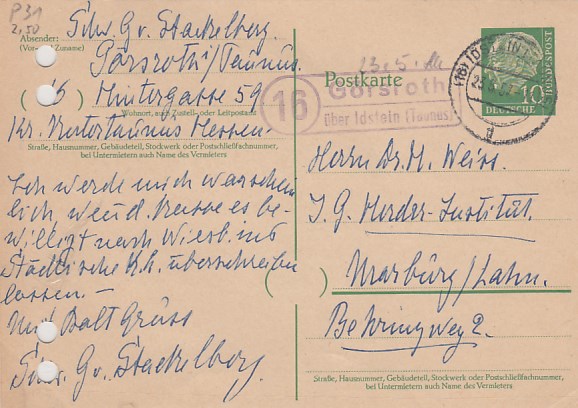 P31
2,50
Absender:
(Vor- und Zuname)
Schw. G v. Stackelberg.
Görsroth/Taunus.
(16) Hintergasse 59
Wohnort, auch Zustell- oder Leitpostamt
Kr. Untertaunus Hessen.
Straße, Hausnummer, Gebäudeteil, Stockwerk oder Postschließfachnummer,
bei Untermietern auch Name des Vermieters
Ich werde mich warschein
lich, wenn d. Kasse es be-
willigt nach Wiesb. ins
Städtische K.h. überschreiben
lassen –
Mit Balt Gruss
Schw. G v. Stackelberg.
23.5.
Postkarte
16
Görsroth
über Idstein (Taunus)
(16) IDSTEIN
d
10
DEUTSCHE BUNDESPOST
Herrn Dr. H. Weiss.
J. G. Herder-Institut.
Marburg/Lahn.
Behringweg 2.
Straße, Hausnummer, Gebäudeteil, Stockwerk oder Postschließfachnummer,
bei Untermietern auch Name des Vermieters